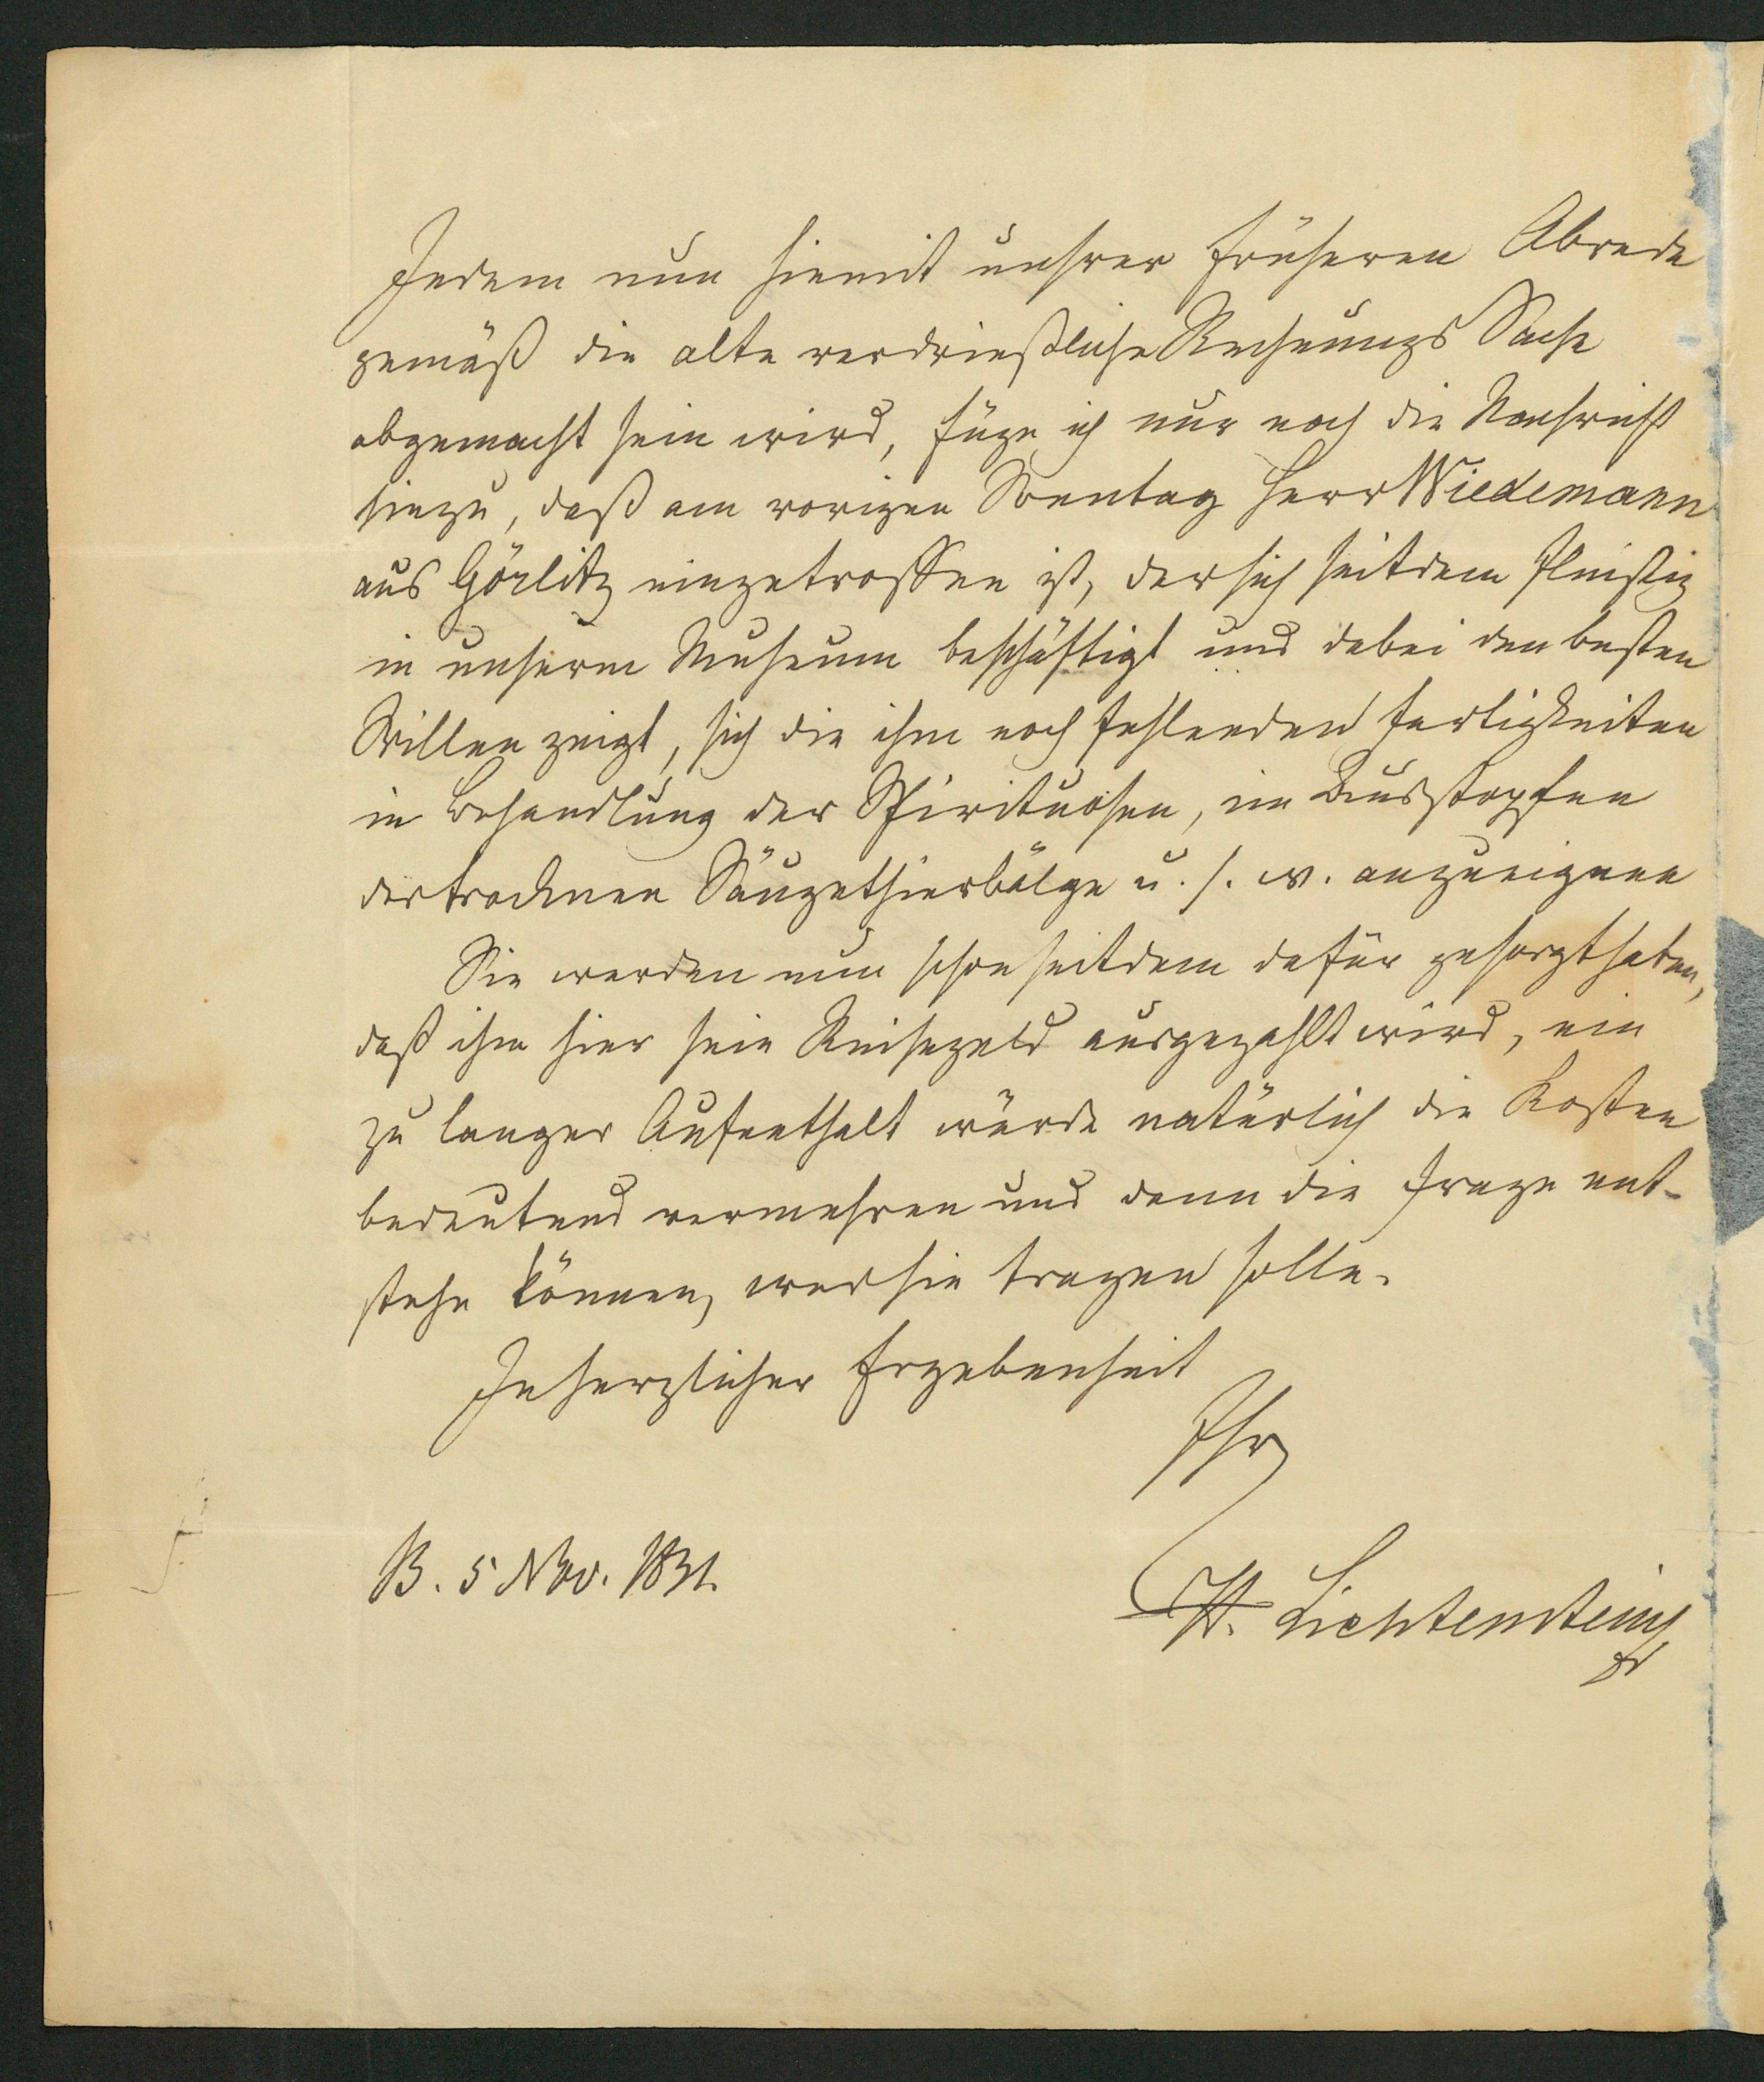 Indem nun hiemit unsrer früheren Abrede
gemäß die alte verdrießliche Rechnungs Sache
abgemacht sein wird, füge ich nur noch die Nachricht
hinzu, daß am vorigen Sonntag Herr Wiedemann
aus Görlitz eingetroffen ist, der sich seitdem fleißig
in unserm Museum beschäftigt und dabei den besten
Willen zeigt, sich die ihm noch fehlenden Fertigkeiten
in Behandlung der Spirituosen, im Ausstopfen
der trocknen Säugethierbälge u. s. w. anzueignen
Sie werden nun schon seitdem dafür gesorgt haben,
daß ihm hier sein Reisegeld ausgezahlt wird, ein
zu langer Aufenthalt würde natürlich die Kosten
bedeutend vermehren und dann die Frage ent-
stehn können, wer sie tragen solle.
In herzlicher Ergebenheit
Ihr
B. 5 Nov. 1831.
H. Lichtenstein